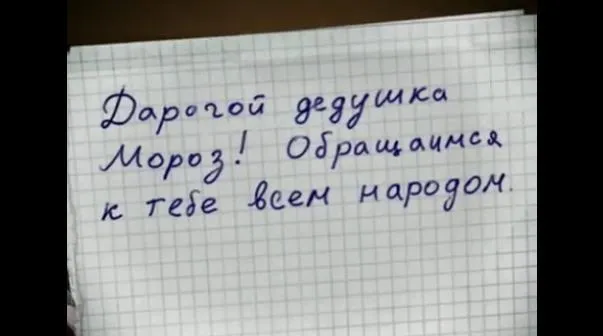 Дарогой дедушка
Мороз! Обращаимся
к тебе всем народом.